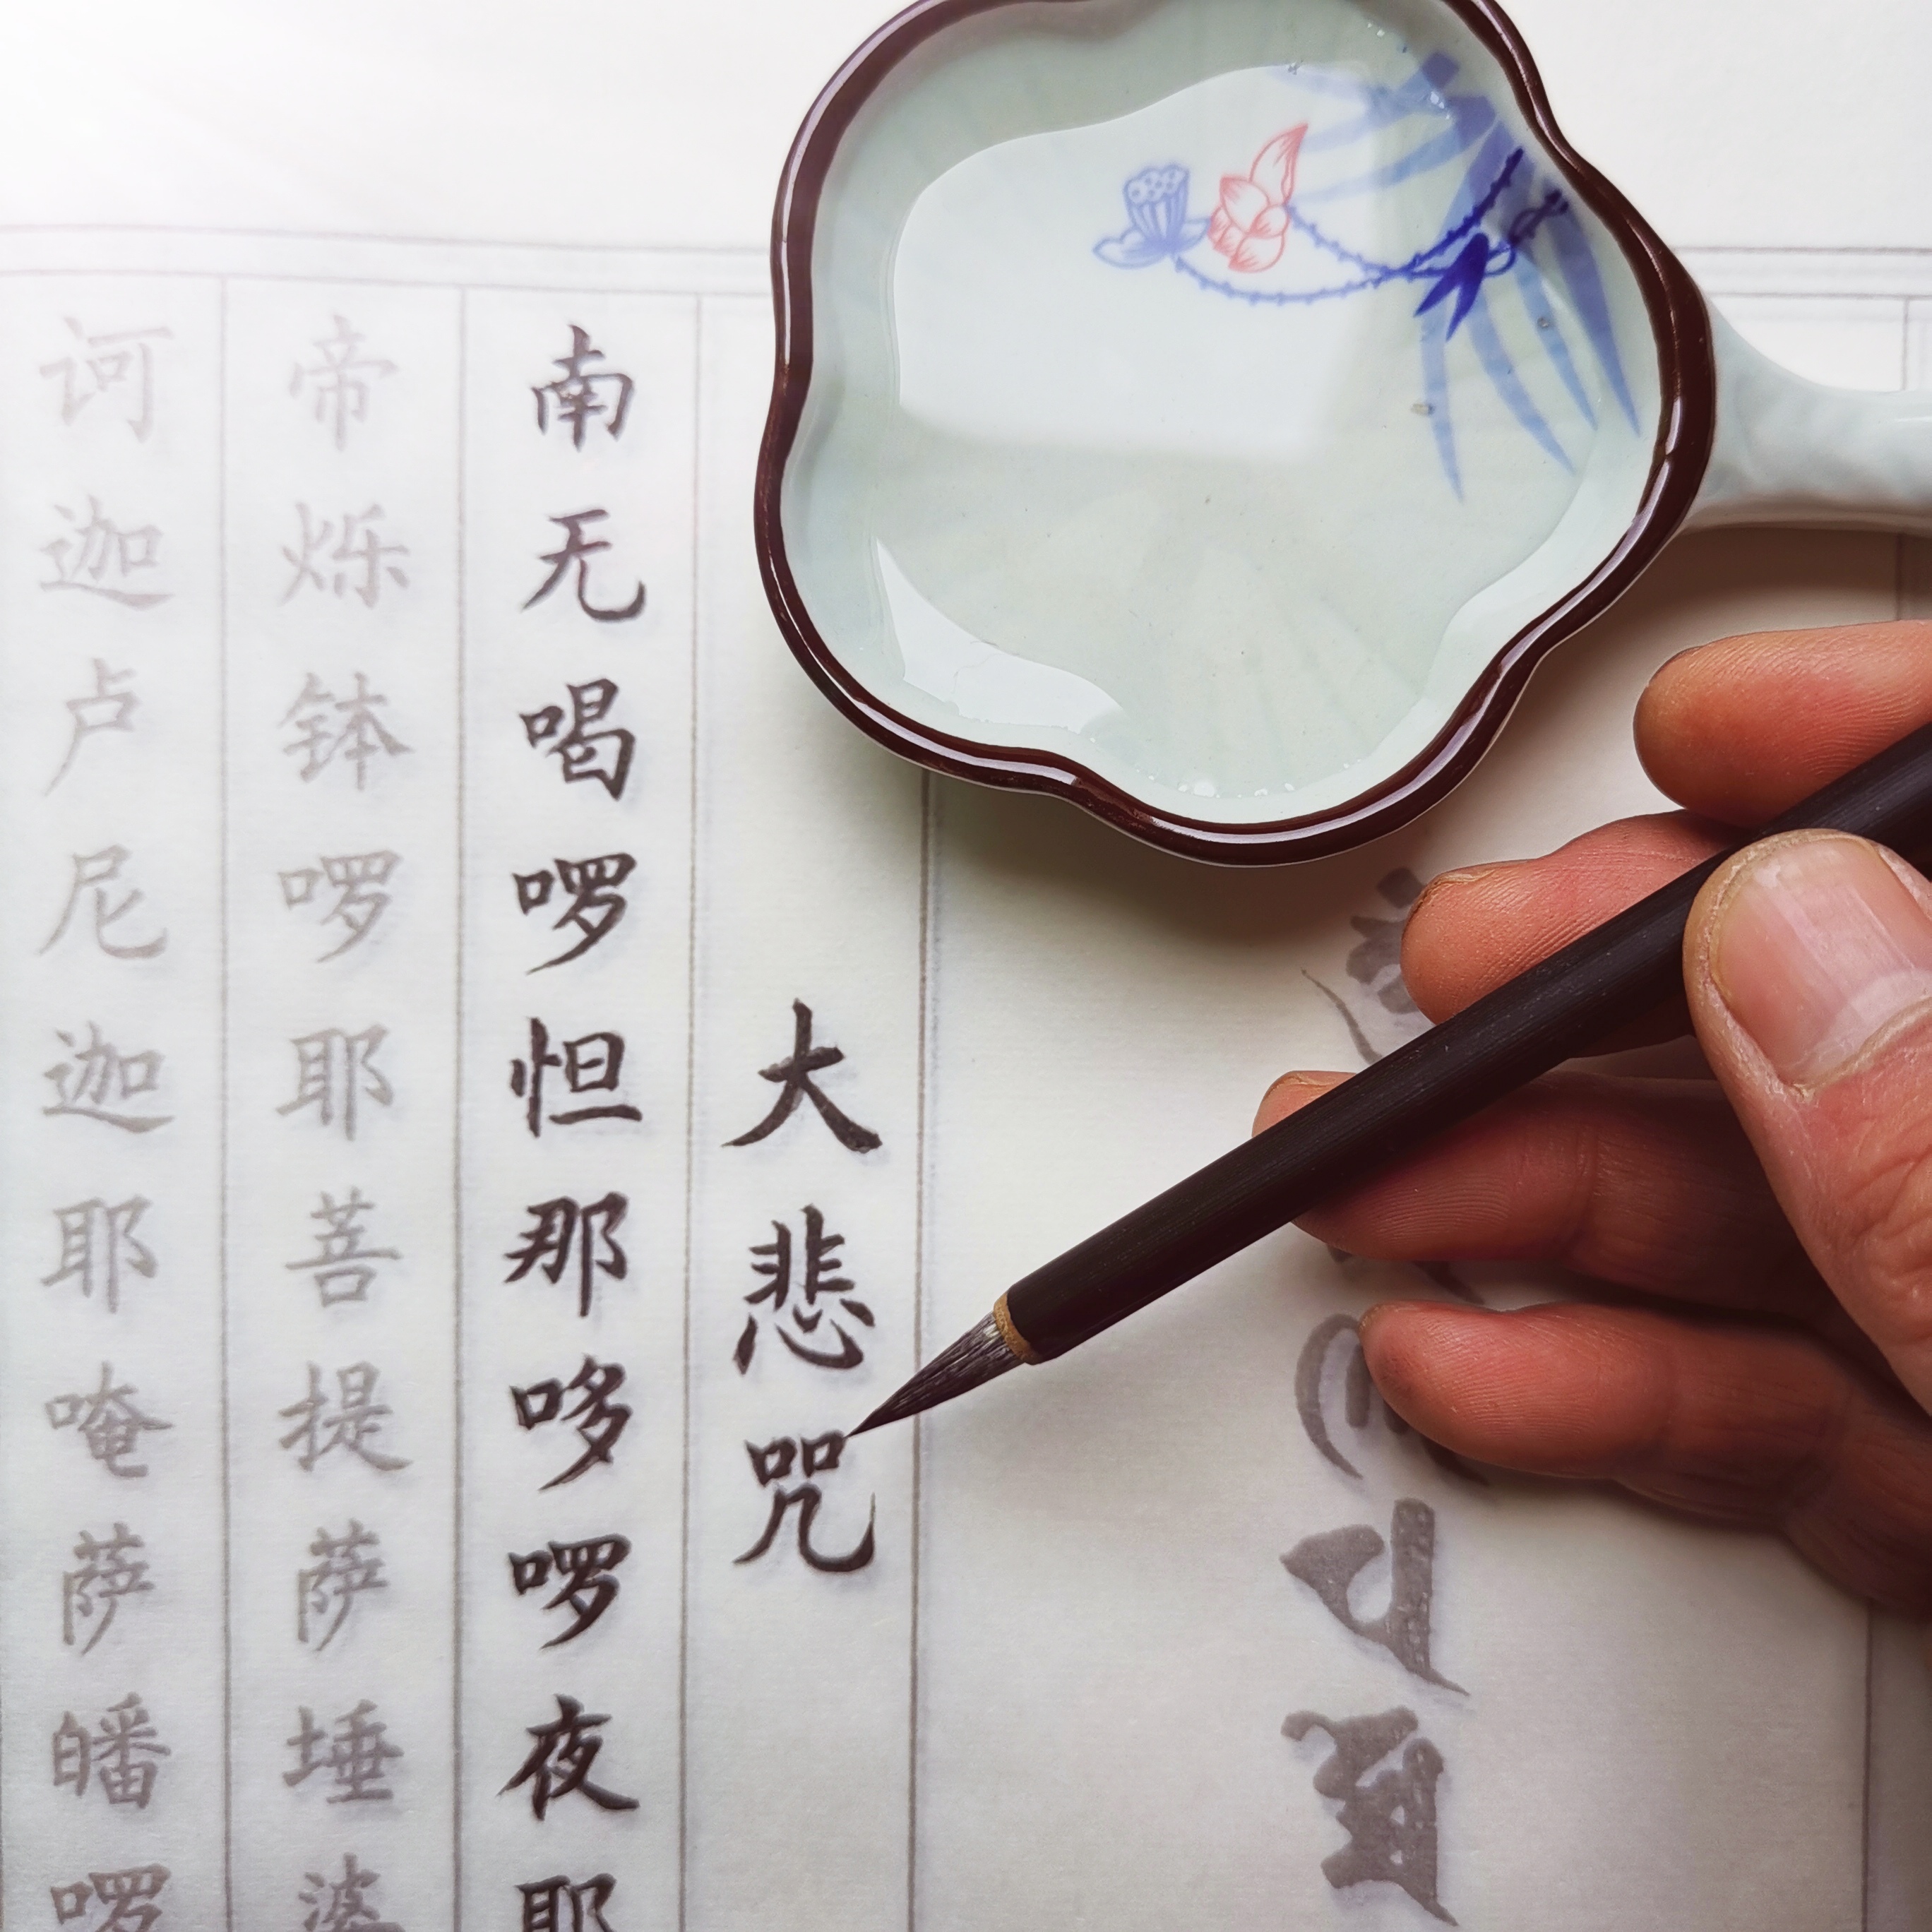 大悲咒
南无喝啰怛那哆啰夜耶
帝烁钵啰耶菩提萨埵婆
诃迦卢尼迦耶唵萨皤啰